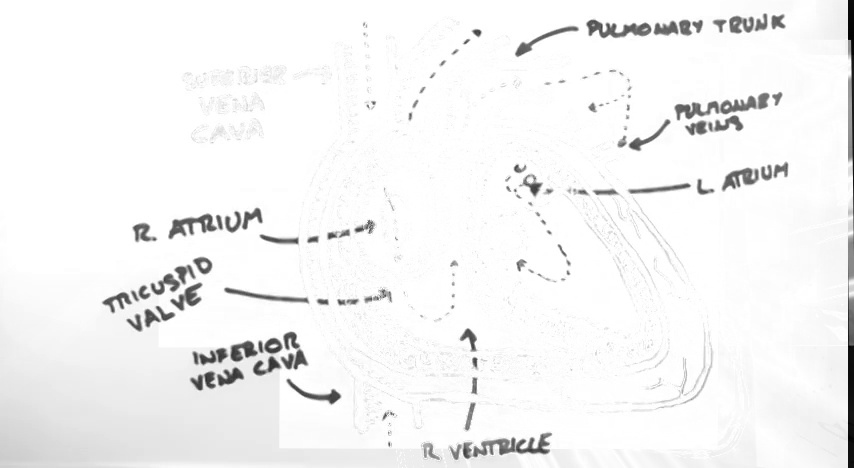 PULMONARY TRUNK
SUPERIOR
VENA
CAVA
PULMONARY
VEINS
L. ATRIUM
R. ATRIUM
TRICUSPID
VALVE
INFERIOR
VENA CAVA
R VENTRICLE